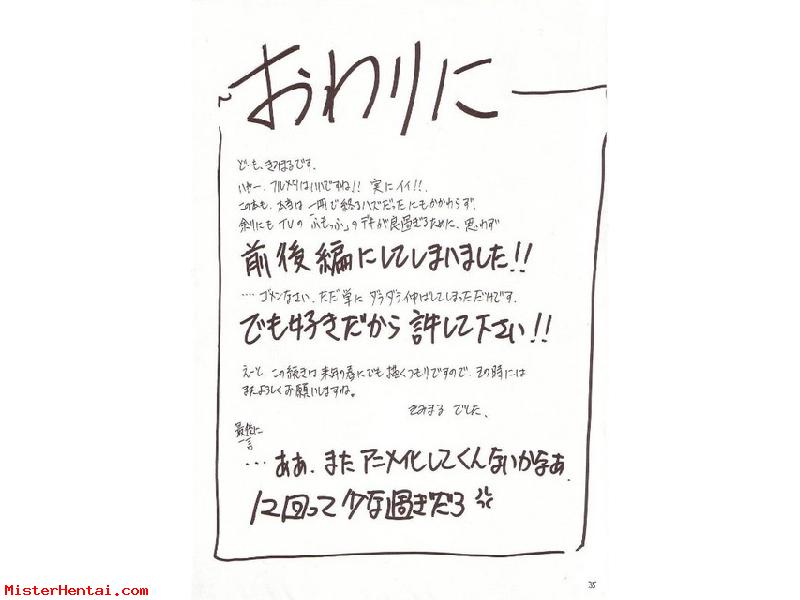 おわりに
ども、きつほるです。
いやー、フルメタはいいですね!! 実にイイ!!.
この本も、本当は一冊で終るハズだったにもかかわらず、
余りにもTVの「ふもっふ」のデキが良過ぎるために、思わず
前後編にしてしまいました!!
‥‥ゴメンなさい、ただ単にダラダラ伸ばしてしまっただけです。
でも好きだから許して下さい!!
えーと、この続きは来年の春にでも描くつもりですので、その時には
またよろしくお願いしますね。
でした、
最後に
一言
‥‥ああ、またアニメ化してくんないかなあ、
12回って少な過ぎだろ
35
MisterHentai.com